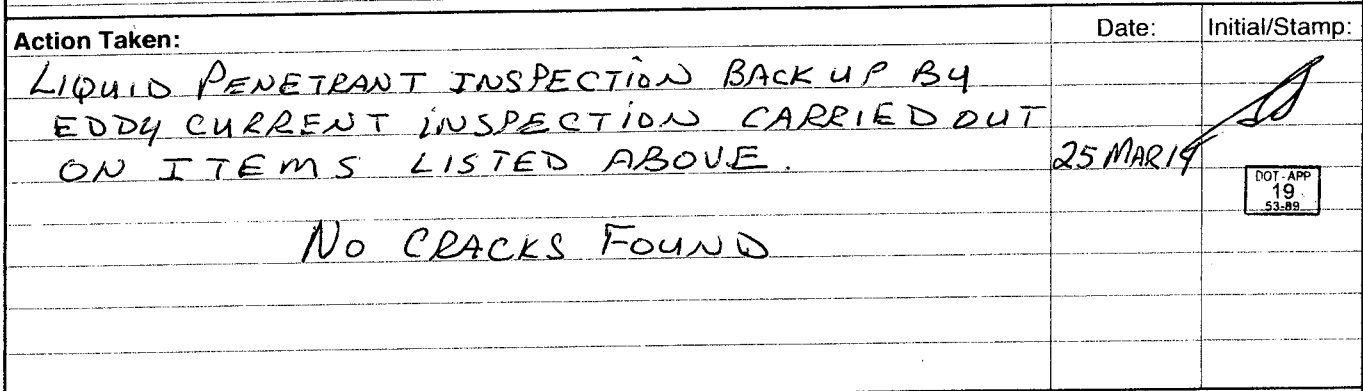 Action Taken: Date: Initial/Stamp:
LIQUID PENETRANT INSPECTION BACK UP BY
EDDY CURRENT INSPECTION CARRIED OUT
ON ITEMS LISTED ABOVE. 25 MAR 19
DOT-APP
19
53-89
NO CRACKS FOUND